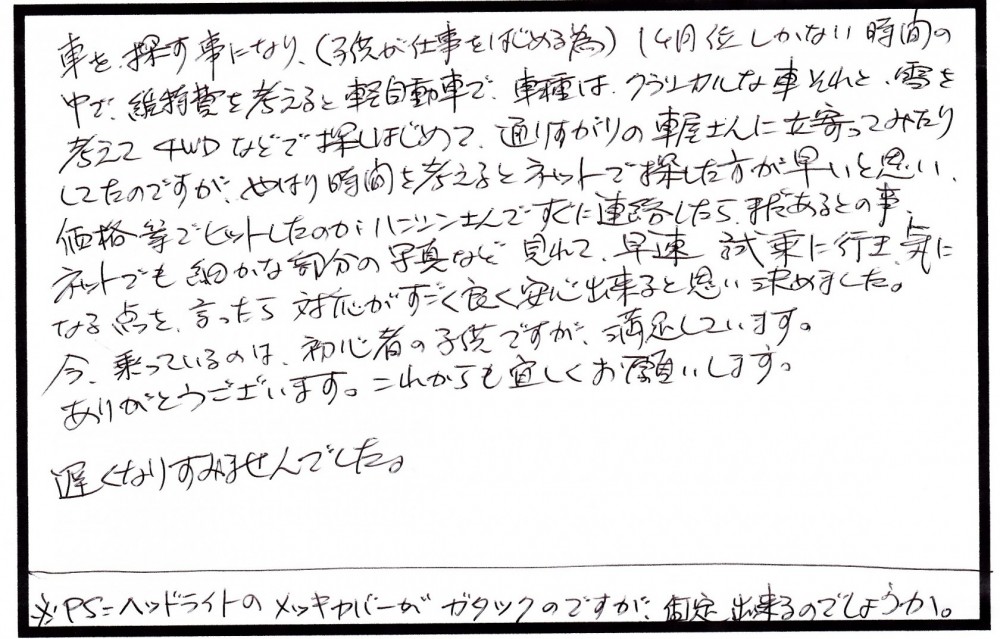 車を、探す事になり、(子供が仕事をはじめる為) 1ヶ月位しかない時間の
中で、維持費を考えると軽自動車で、車種は、クラシカルな車それと、雪を
考えて4WDなどで探しはじめて、通りすがりの車屋さんに立寄ってみたり
してたのですが、やはり時間を考えるとネットで探した方が早いと思い、
価格等でヒットしたのが、ハニンさんですぐに連絡したら、まだあるとの事、
ネットでも細かな部分の写真など見れて、早速試乗に行き、気に
なる点を、言ったら対応がすごく良く安心出来ると思い決めました。
今、乗っているのは、初心者の子供ですが、満足しています。
ありがとうございます。これからも宜しくお願いします。
遅くなりすみませんでした。
※PS=ヘッドライトのメッキカバーがガタつくのですが、固定出来るのでしょうか。